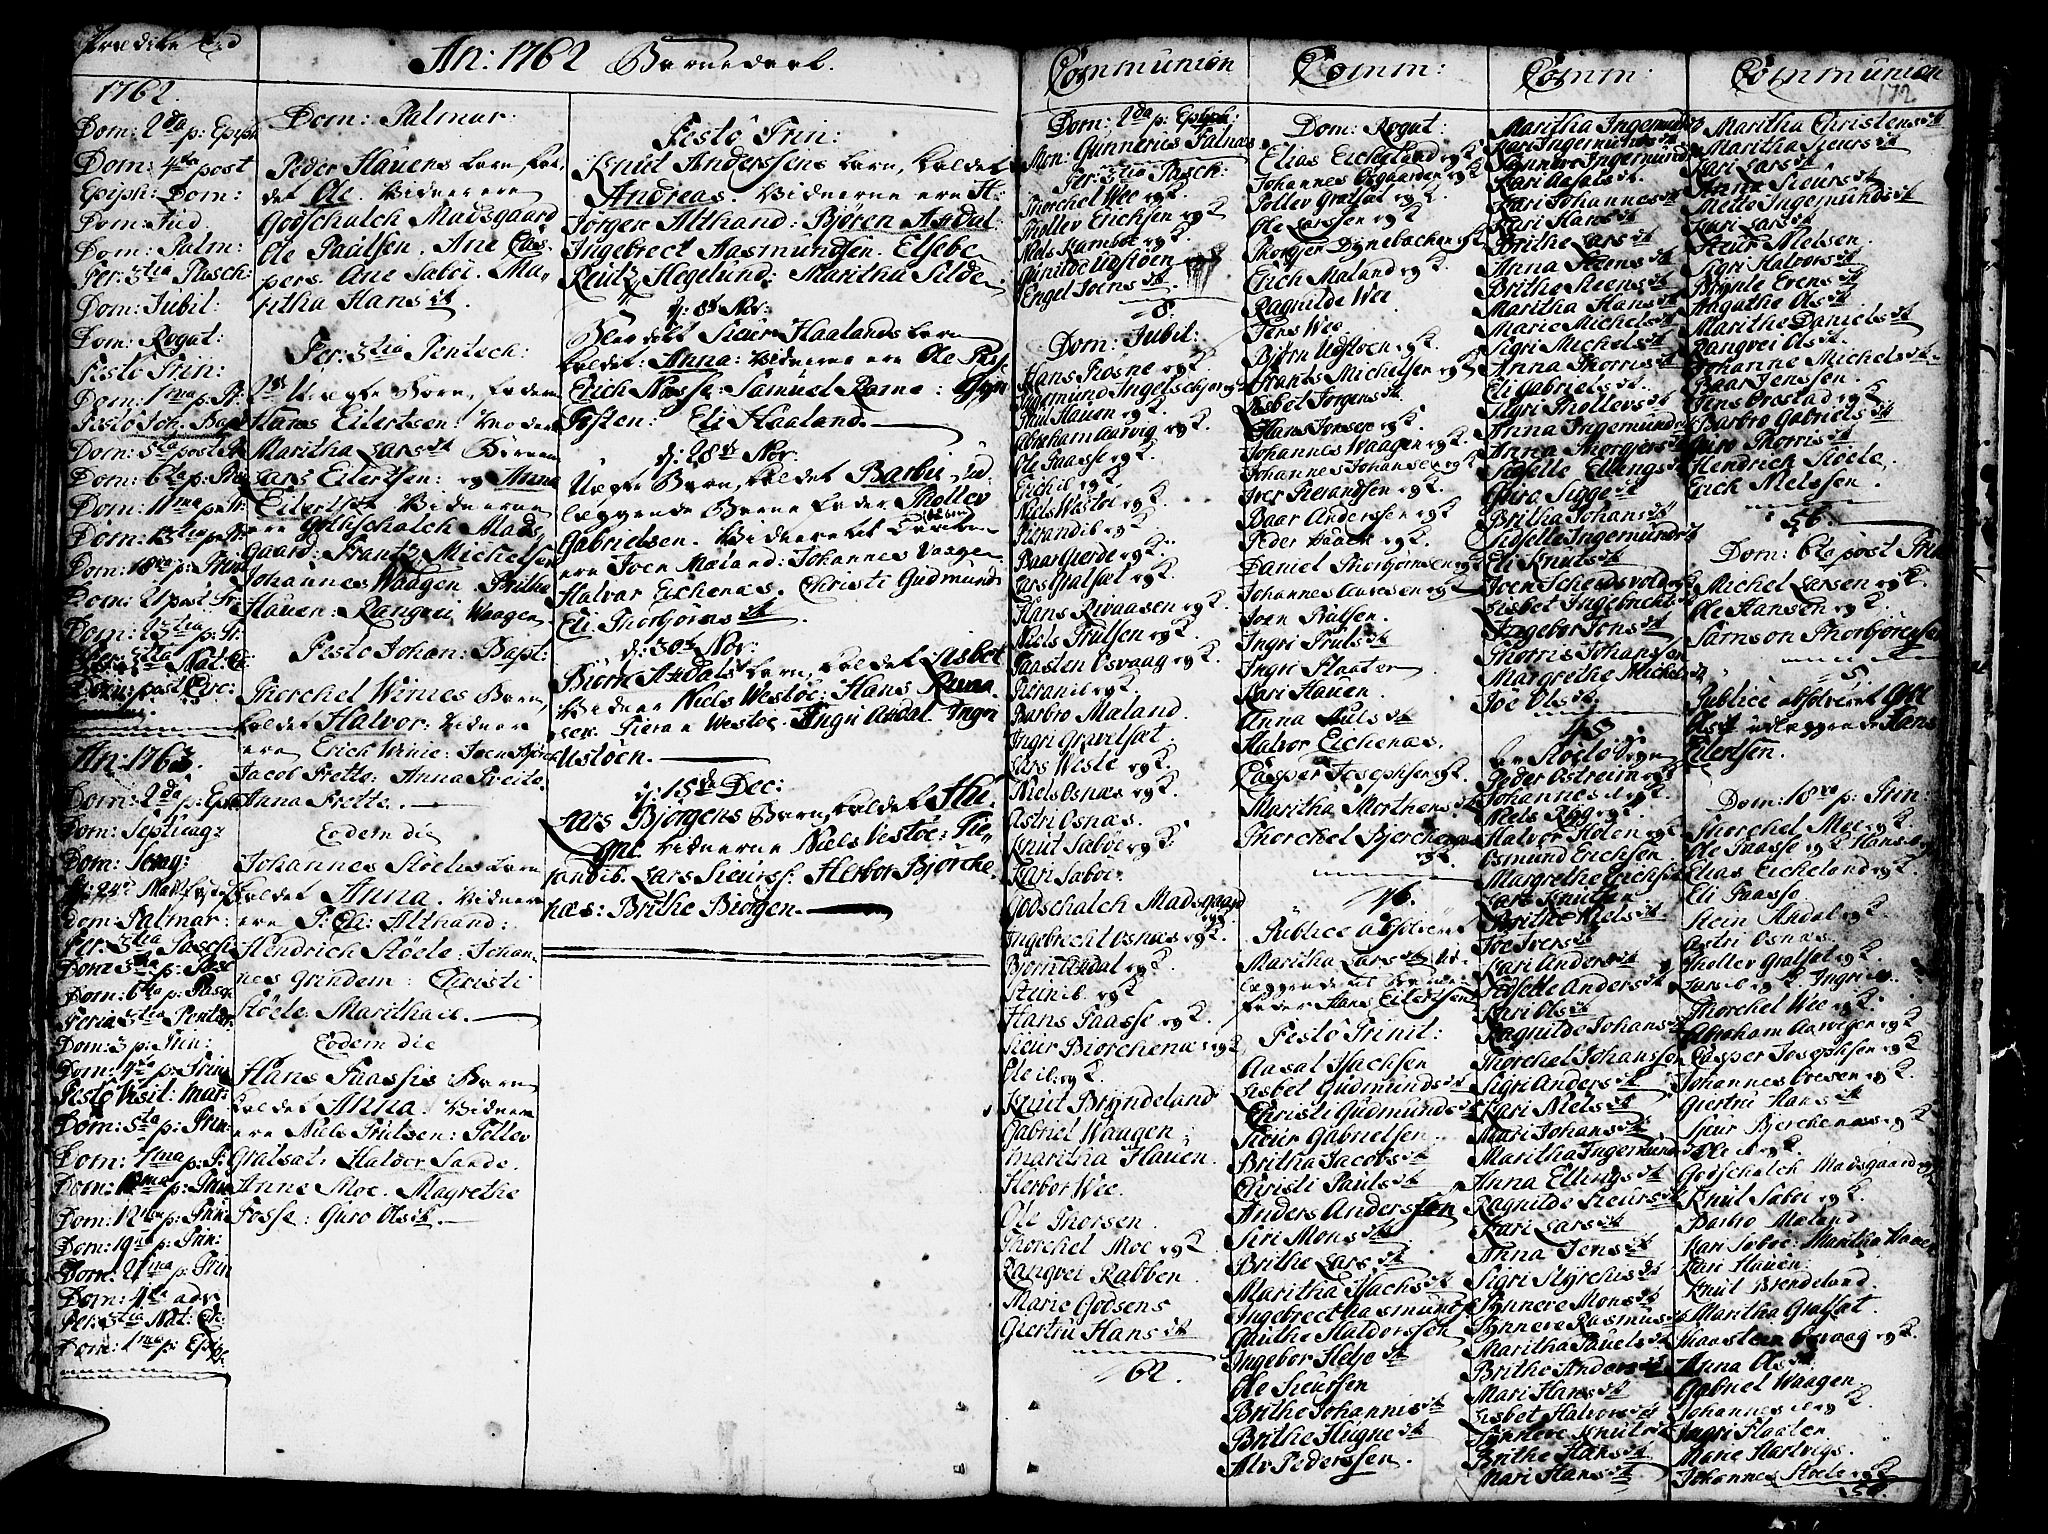 Prædike Tid
1762.
Dom: 2da p: Epiph
Dom: 4ta post
Epiph: Dom:
Dom: Jud.
Dom: Palm:
Fer: 3tia Pasch:
Dom: Jubil:
Dom: Rogat:
Festo Trin:
Dom: 1ma p: Tr:
Festo Joh: Bapt
Dom: 5ta post Tr
Dom: 6ta p: Trin
Dom: 11ma p: Tr
Dom: 13tia p: Tr
Dom: 18va p: Trin
Dom: 21 post Tr:
Dom: 23tia p: Tr.
Fer: 3tia Nat: Ch:
Dom: post Circ:
An: 1763.
Dom: 2da p: Epi
Dom: Septuag:
Dom: Sexag:
Dom: Palmar:
Fer: 3tia Pasch:
Dom: 3tia p: Pasc
Dom: 6ta p: Pasch
Feria 3tia Pentec.
Dom: 3 p: Trin:
Dom: 4ta p: Trin
Festo Visit: Mar:
Dom: 5ta p: Trin:
Dom: 7ma p: Tr
Dom: 10ma p: Trin
Dom: 12ma p: Trin
Dom: 19na p: Trin:
Dom: 21ma p: Trin
Dom: 4ta adv
Fer: 3tia Nat: Ch:
Dom: 1ma p: Epiph:
An: 1762 Barnedaab.
Dom: Palmar:
Peder Hauens barn kal-
det Ole. Vidner ere
Godschalch Madsgaard
Ole Paulsen. Ane Cas-
pers. Ane Saböe. Ma-
ritha Hansdt
Fer: 3tia Pentech:
2de Uægte Börn, faderen
Hans Eilertsen: Moder
Maritha Larsdt Börnene
Lars Eilertsen: og Anna
Eilertsdt Vidnerne
ere Gothschalch Mads-
gaard: Frantz Michelsen
Johannes Waagen. Brithe
Hauen: Rangvei Waagen
Festo Johan: Bapt:
Thorchel Wines Barn
kaldet Halvor: Vidner
ere Erich Wine: Joen Björch
Jacob Frette: Anna Freite.
Anna Frette.
Eodem die
Johannes Stöeles barn
kaldet Anna. Vidner
ere P: Ole: Althand:
Hendrich Stöele: Johan-
nes Grindem: Christi
Stöele. Maritha
Eodem die
Hans Faassis Barn
kaldet Anna. Vidner
ere Niels Trulsen: Tollev
Gratsat: Haldor Sande.
Anne Moe. Magrethe
Fosse: Guro Olsdt.
Festo Trin:
Knut Anderssens barn, kaldet
Andreas. Vidnerne ere H:
Jörgen Althand: Björen Asdal:
Ingebrect Aasmundsen. Elsebe
Reutz Hegelund: Maritha Selde:
d: 8de Nov:
Blev döbt Sieur Haalands barn
kaldet: Anna: Vidnerne ere Ole Fos:
Erich Næsse: Samuel Ramne:
Fosten: Eli Haaland.
d: 28de Nov:
Uægte Barn, kaldet Barbu: ud-
læggende Barne fader Thollev
Gabrielsen. Vidnerne til
ere Joen Mæland: Johannes Vaagen
Halvor Eichenæs. Christi Gudmunds
Eli Thorbjörnsdt.
d: 30te Nov:
Biörn Asdals barn, kaldet Lisbet
Vidner Niels Westöe: Hans
Westöe. Ingri Asdal. Ingri
Ustöen.
d: 15de Dec:
Lars Bjorgens Barn, kaldet Hu-
gne. Vidnerne Niels Vestöe: Tie-
randib. Lars Sieurss: Herbor Bjorche-
næs: Brithe Biorgen.
Communion
Dom: 2da p: Epiph:
Mon: Gunnerius Falnas
Fer: 3tia Pasch:
Thorchel Wee ogK.
Thollev Erichsen ogK
Niels Kamboe ogK.
Gunilde Udstöen
Engel Joensdt
8.
Dom: Jubil:
Hans Röene ogK.
Ingemund Ingelschjer ogK
Poul Hauen ogK.
Abraham Aarvig ogK.
Ole Faasse ogK.
Erich ib. ogK
Niels Wastöe ogK.
Tierandib. ogK
Baar Gierde ogK.
Lars Gratsat ogK.
Hans Rivaasen ogK.
Niels Trulsen ogK.
Faasten Osvaag ogK.
Tieranib. ogK.
Barbro Maland.
Ingri Gravelsæt.
Lars Westö ogK.
Niels Osnæs ogK.
Astri Osnæs.
Knut Saböe ogK.
Kari Saböe
Godschalch Madsgaard
ogK
Ingebrecht Osnæs ogK.
Björn Lindal ogK.
Steinib. ogK
Hans Faasse ogK.
Sieur Biorchenæs ogK
Ole ib. ogK.
Knut Bryndeland
Gabriel Waagen
Maritha Hauen.
Herbor Wee.
Ole Thorsen.
Thorchel Moe ogK
Rangvei Rabben.
Marie Godsens
Giertru Hansdt
62.
Comm:
Dom: Rogat:
Elias Eicheland ogK.
Johannes Ovgaarden ogK
Tollev Gratsat ogK.
Ole Larssen ogK
Thorgjer Dynebachen ogK
Erich Maland ogK.
Ragnilde Wee
Jens Wee.
Björn Udstoen ogK.
Frants Michelsen ogK
Lisbet Jörgensdt
Hans Jonsen ogK.
Johannes Waagen ogK.
Johannes Johansen ogK
Iver Tierandsen ogK.
Baar Anderssen ogK
Peder ogK.
Daniel Thorbjörnsen ogK
Johannes Larssen ogK
Joen Trulsen.
Ingri Trulsdt
Ingri Flaaten
Kari Hauen.
Anna Aulsdt
Halvor Eichenæs.
Casper Josephsen ogK.
Maritha Morthensdt
Thorchel Bjerchenæs
ogK.
46.
Publice absolveret
Maritha Larsdt ud-
læggende til Barne-
fader Hans Eilertsen
Festo Trinit:
Aasal Isachsen
Lisbet Gudmundsdt
Christi Gudmundsdt
Sieur Gabrielsen
Britha Jacobsdt
Christi Paulsdt
Anders Anderssen
Siri Monsdt
Brithe Larsdt
Maritha Isachsdt
Ingebrecht Aasmunds
Gauthe Haldorssen
Ingebor Heljesdt
Ole Sieursen
Brithe Johannisdt
Brithe Hugnedt
Alv Pederssen.
Comm:
Maritha Ingemundsdt
Kari Ingemundsdt
Synnere Ingemundsdt
Kari Aasalsdt.
Kari Johannesdt
Kari Hansdt
Brithe Larsdt
Anna Steensdt
Brithe Steensdt
Maritha Hansdt
Marie Michelsdt
Sigri Michelsdt
Anna Thorrisdt
Eli Gabrielsdt.
Sigri Thollevsdt
Anna Ingemundsdt
Anna Thorgjersdt
Sidselle Ellingsdt
Guro Siggesdt
Britha Johansdt
Sidselle Ingemundsdt
Eli Knutsdt
Joen Scheidsvold ogK
Lisbet Ingebrechtsdt
Ingebor Jonsdt
Thorris Johanssen
Margrethe Michelsdt
Joe Olsdt
43
Peder Ostreim ogK
Johannes ib ogK.
Niels Rög ogK.
Halvor Holen ogK
Osmund Erichsen
Margrethe Erichsdt
Lars Knutsen
Brithe Nielsdt
Joe Iversdt
Kari Andersdt
Sidselle Andersdt
Kari Olsdt
Ragnilde Johansdt
Thorchel Johanssen
Sigri Andersdt
Kari Nielsdt
Mari Johansdt
Maritha Ingemundsdt
Anna Ellingsdt
Ragnilde Sieursdt
Kari Larsdt
Anna Jensdt
Sigri Styrchisdt
Synnere Monsdt
Synnere Rasmusdt
Maritha Pauelsdt
Brithe Andersdt
Mari Hansdt
Lisbet Halvorsdt
Synnere Knutsdt
Brithe Hansdt
Mari Hansdt
Communion
172
Maritha Christensdt
Maritha Sieursdt
Kari Larsdt
Anna Sieursdt
Mette Ingemundsdt
Kari Larsdt
Steur Nielsen.
Sigri Halvorsdt
Brynle Evensdt
Angatha Olsdt
Marithe Danielsdt
Rangvei Olsdt
Johanne Michelsdt
Baar Jenssen.
Jens Orastad ogK
Barbro Gabrielsdt
Guro Thorrisdt
Hendrich Stöele.
Erich Nielssen.
56.
Dom: 6ta post Trin
Michel Larsen ogK.
Ole Hansen ogK.
Samson Thorbjörnsen
5.
Publice absolveret
Olsdt udlæggende Hans
Eilertsen.
Dom: 18va p: Trin:
Thorchel Moe ogK
Ole Faasse ogK Hans
Elias Eicheland ogK.
Eli Faasse
Stein Asdal ogK
Astri Osnæs.
Thollev Gratsat ogK
Lars ib ogK. Ingri
Thorchel Wee ogK.
Abraham Aarvigen ogK
Casper Josephsen ogK
Johannes Ovesen ogK
Giertru Hansdt
Sieur Berchenæs ogK
Ole ib ogK.
Godschalch Madsgaard ogK
Knut Saboe ogK.
Barbro Maland
Kari Saboe. Maritha Hauen
Kari Hauen:
Knut Brendeland.
Maritha Gratsat.
Faasteen Osvaag ogK.
Anna Olsdt
Gabriel Waagen
Johannes ib ogK.
Ingri Flaaten
Marie Hartvigs.
Johannes Stoele ogK